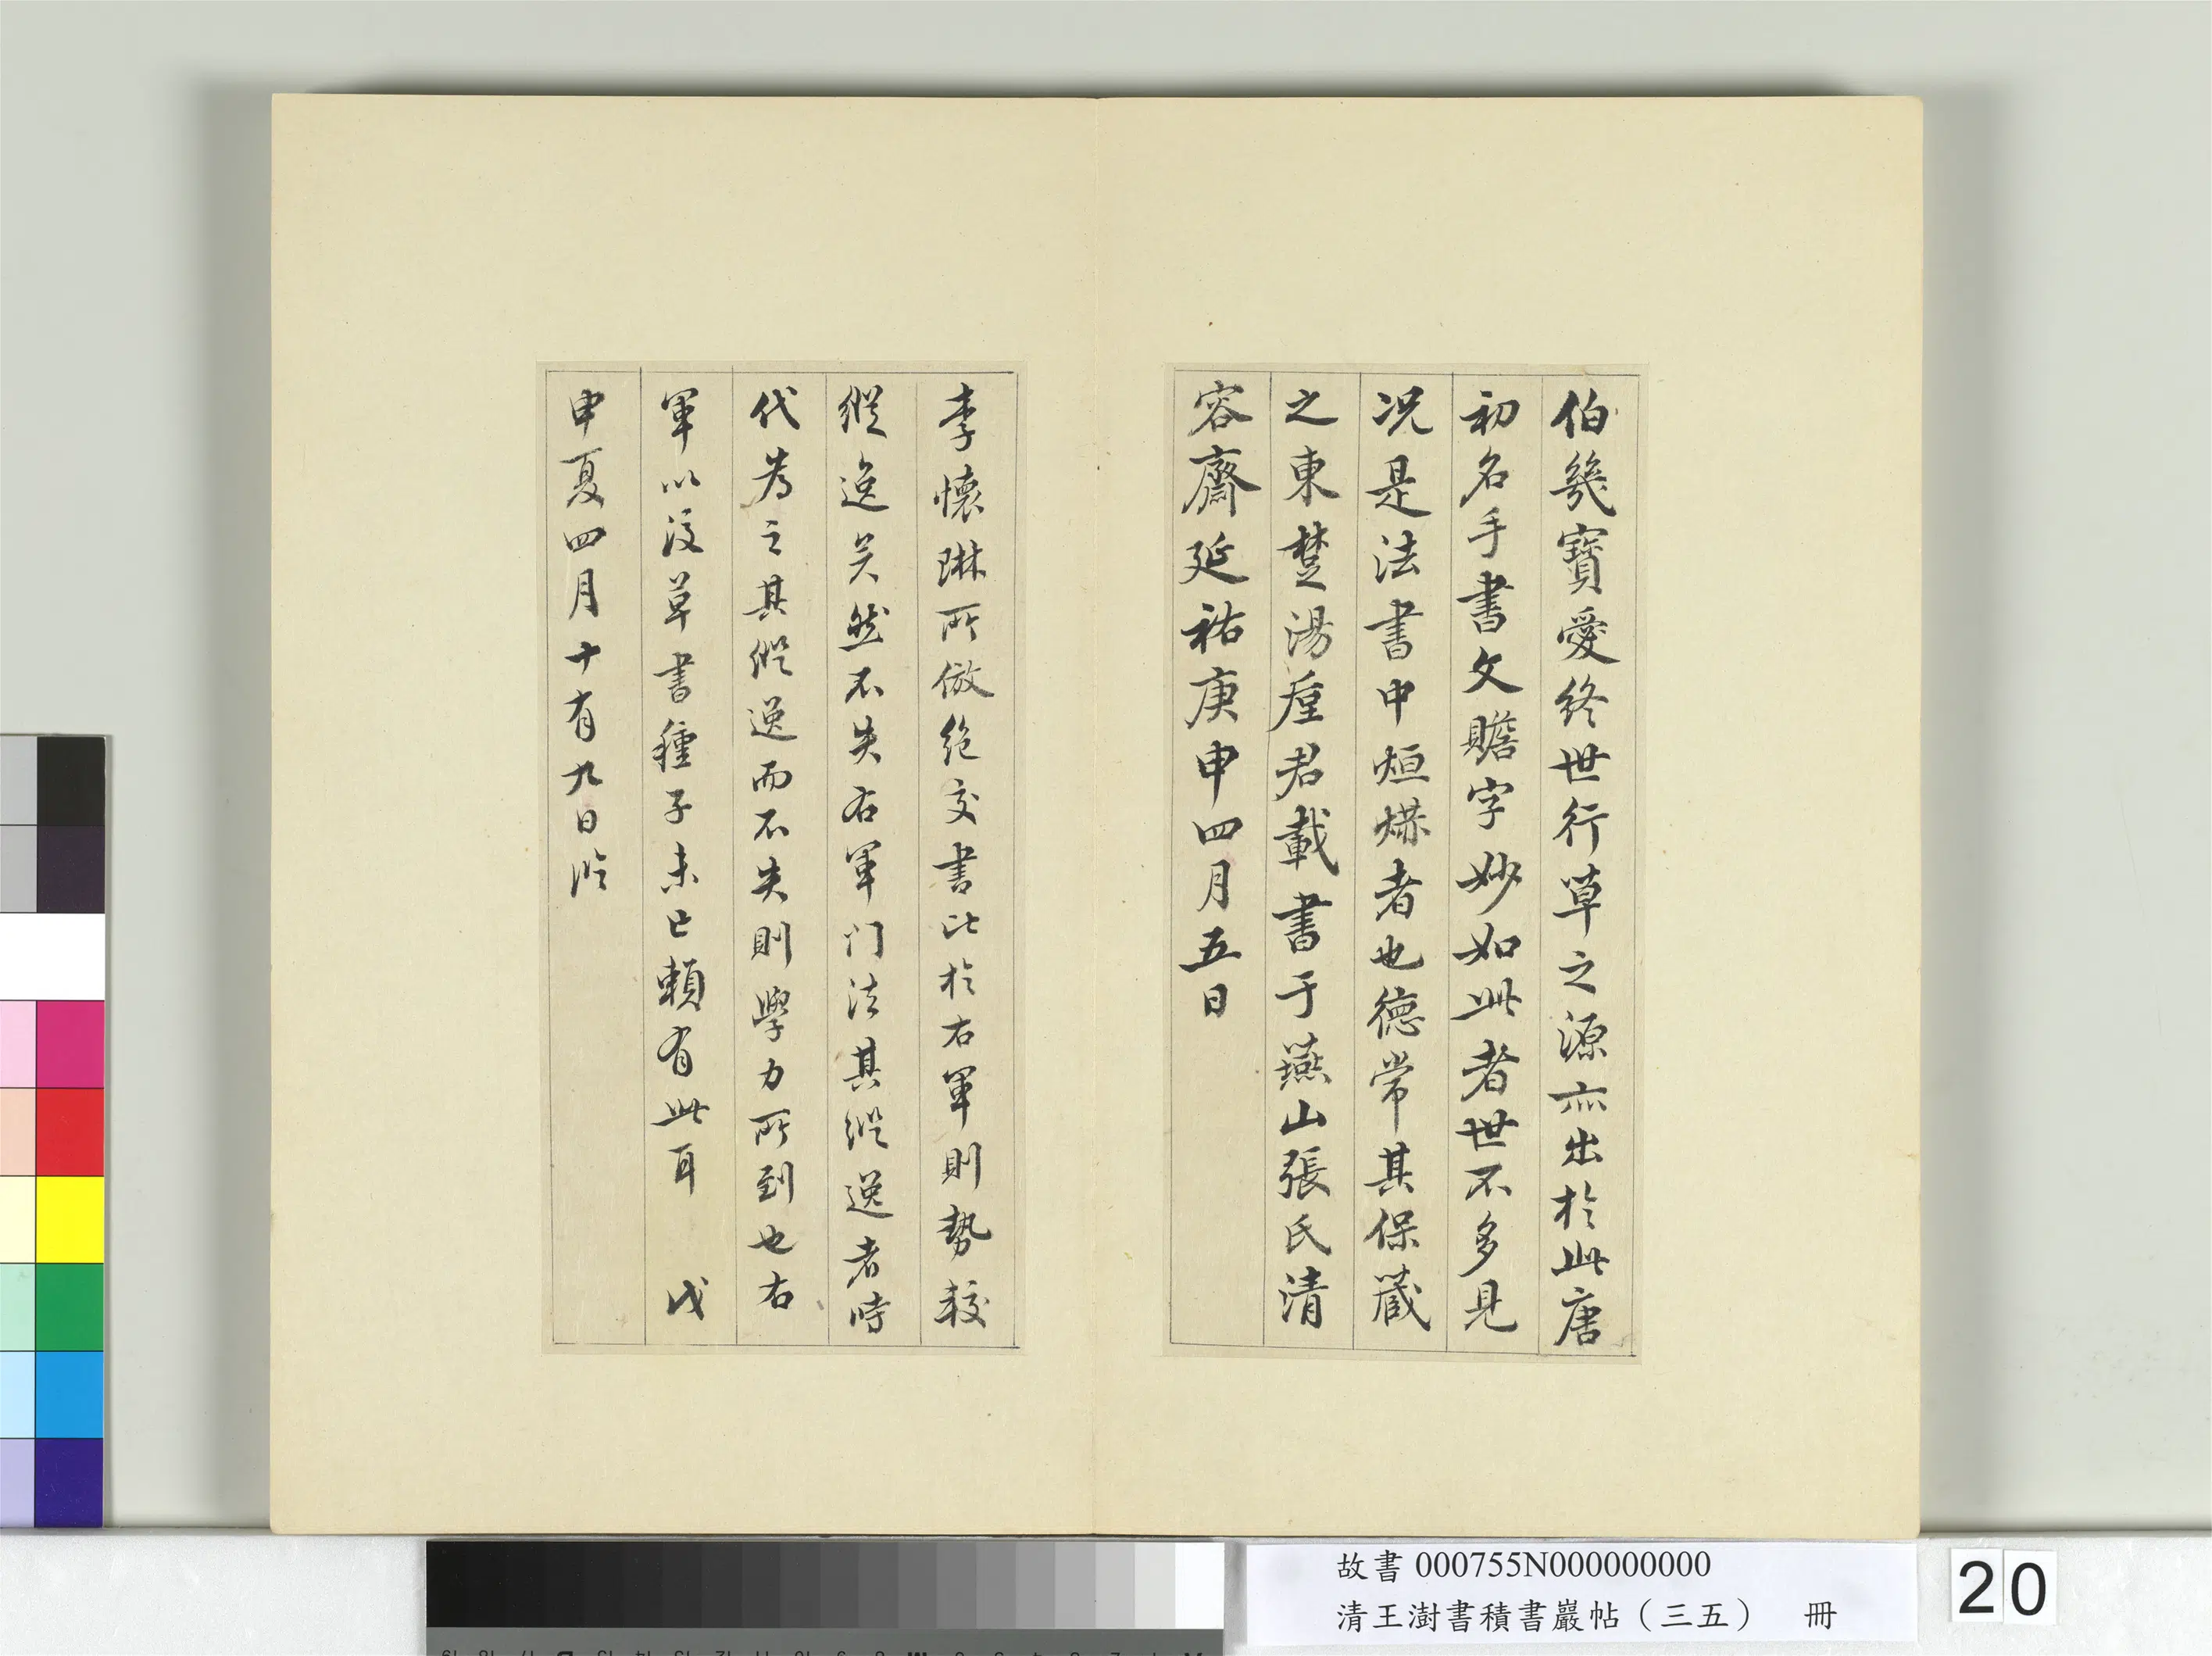 伯幾寶愛終世行草之源亦出於此唐
初名手書文贍字妙如此者世不多見
况是法書中烜爀者也德常其保藏
之東楚湯垕君載書于燕山張氏清
容齋延祐庚申四月五日
李懷琳所倣絶交書比於右軍則勢較
縱逸矣然不失右軍門法其縱逸者時
代為之其縱逸而不失則學力所到也右
軍以後草書種子未亡賴有此耳 戊
申夏四月十有九日臨
故書 000755N000000000
清王澍書積書巖帖（三五） 冊
20